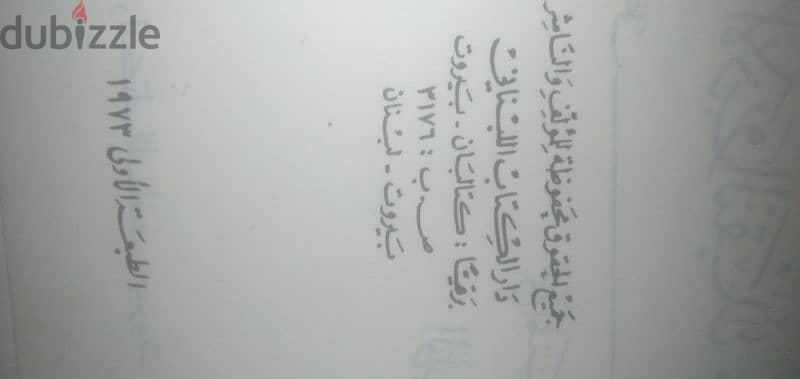 dubizzle
جَميْعُ الحقوق محفوظة للمؤلِّف وَالنَاشِر
دَار الكِتابْ اللبْنَاني
بَرقيًا : كتالبَان - بَيروت
ص . ب : ٣١٧٦
بَيروت - لبْنان
الطبعَة الأولى ١٩٧٣